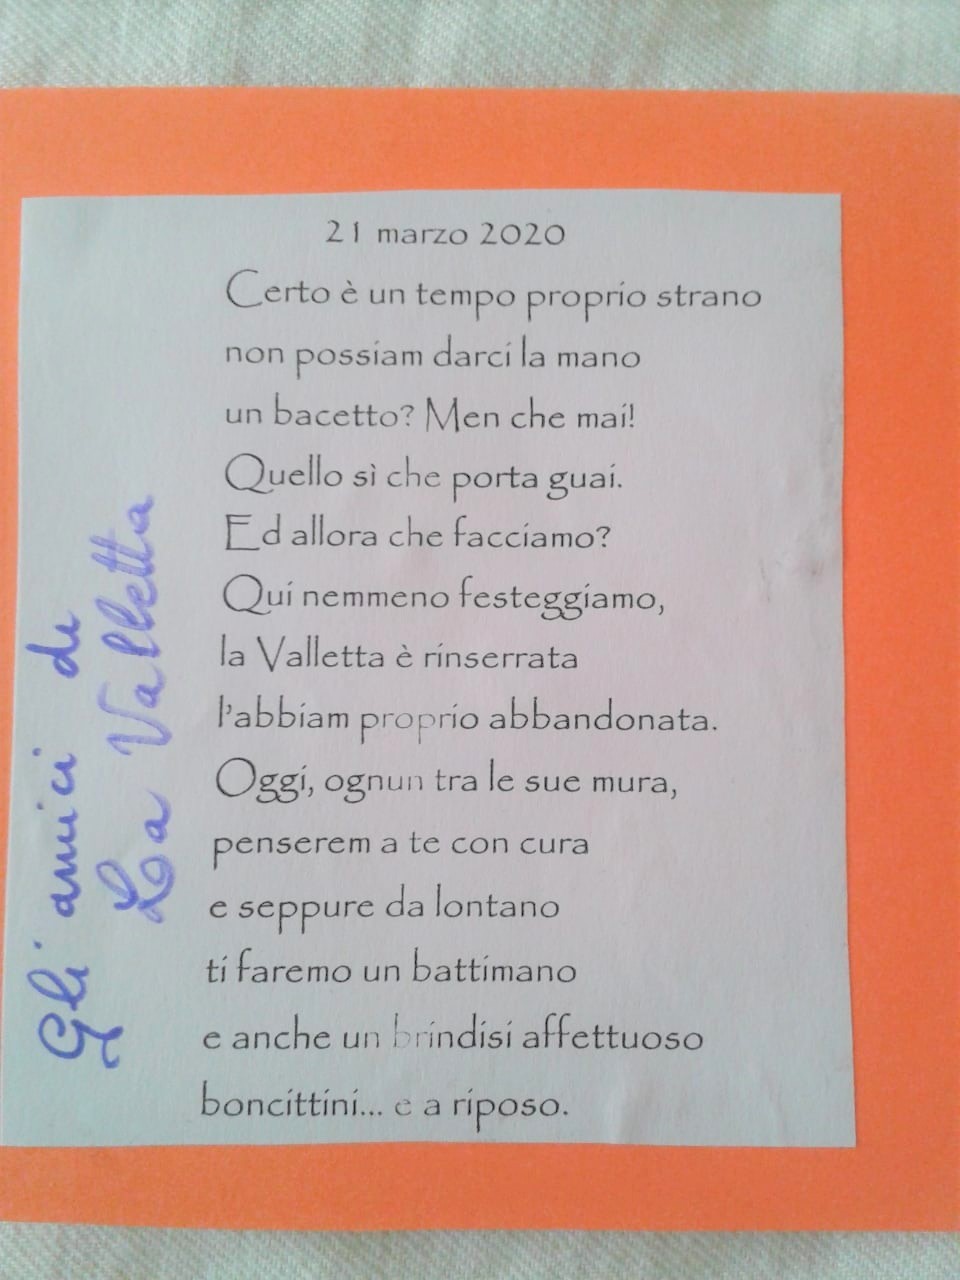 21 marzo 2020
Certo è un tempo proprio strano
non possiam darci la mano
un bacetto? Men che mai!
Quello sì che porta guai.
Ed allora che facciamo?
Qui nemmeno festeggiamo,
la Valletta è rinserrata
l'abbiam proprio abbandonata.
Oggi, ognun tra le sue mura,
penserem a te con cura
e seppure da lontano
ti faremo un battimano
e anche un brindisi affettuoso
boncittini... e a riposo.
Gli amici de
La Valletta